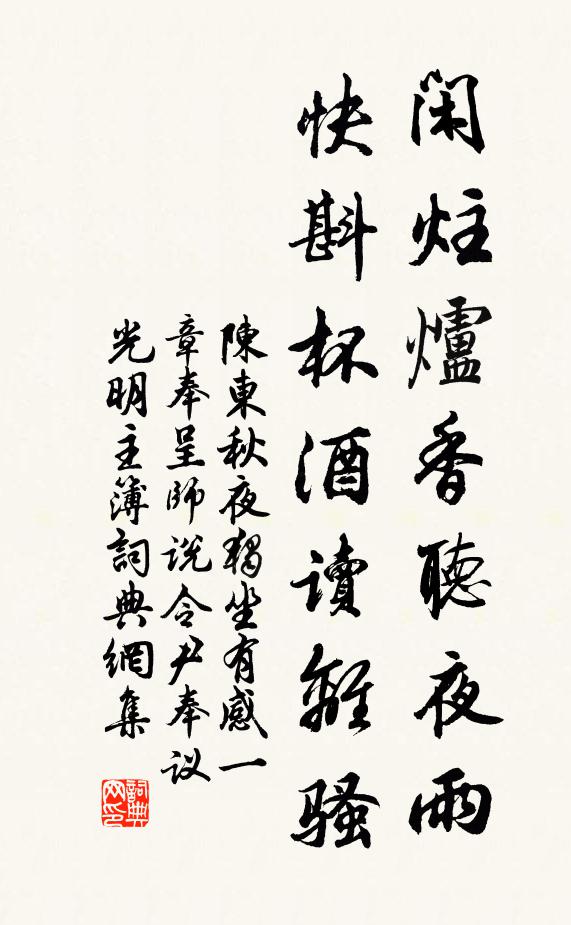 闲炷爐香聽夜雨
快斟杯酒读離骚
陳東秋夜獨坐有感一
章奉呈師说令尹奉议
光明主簿詞典網集
詞典网印